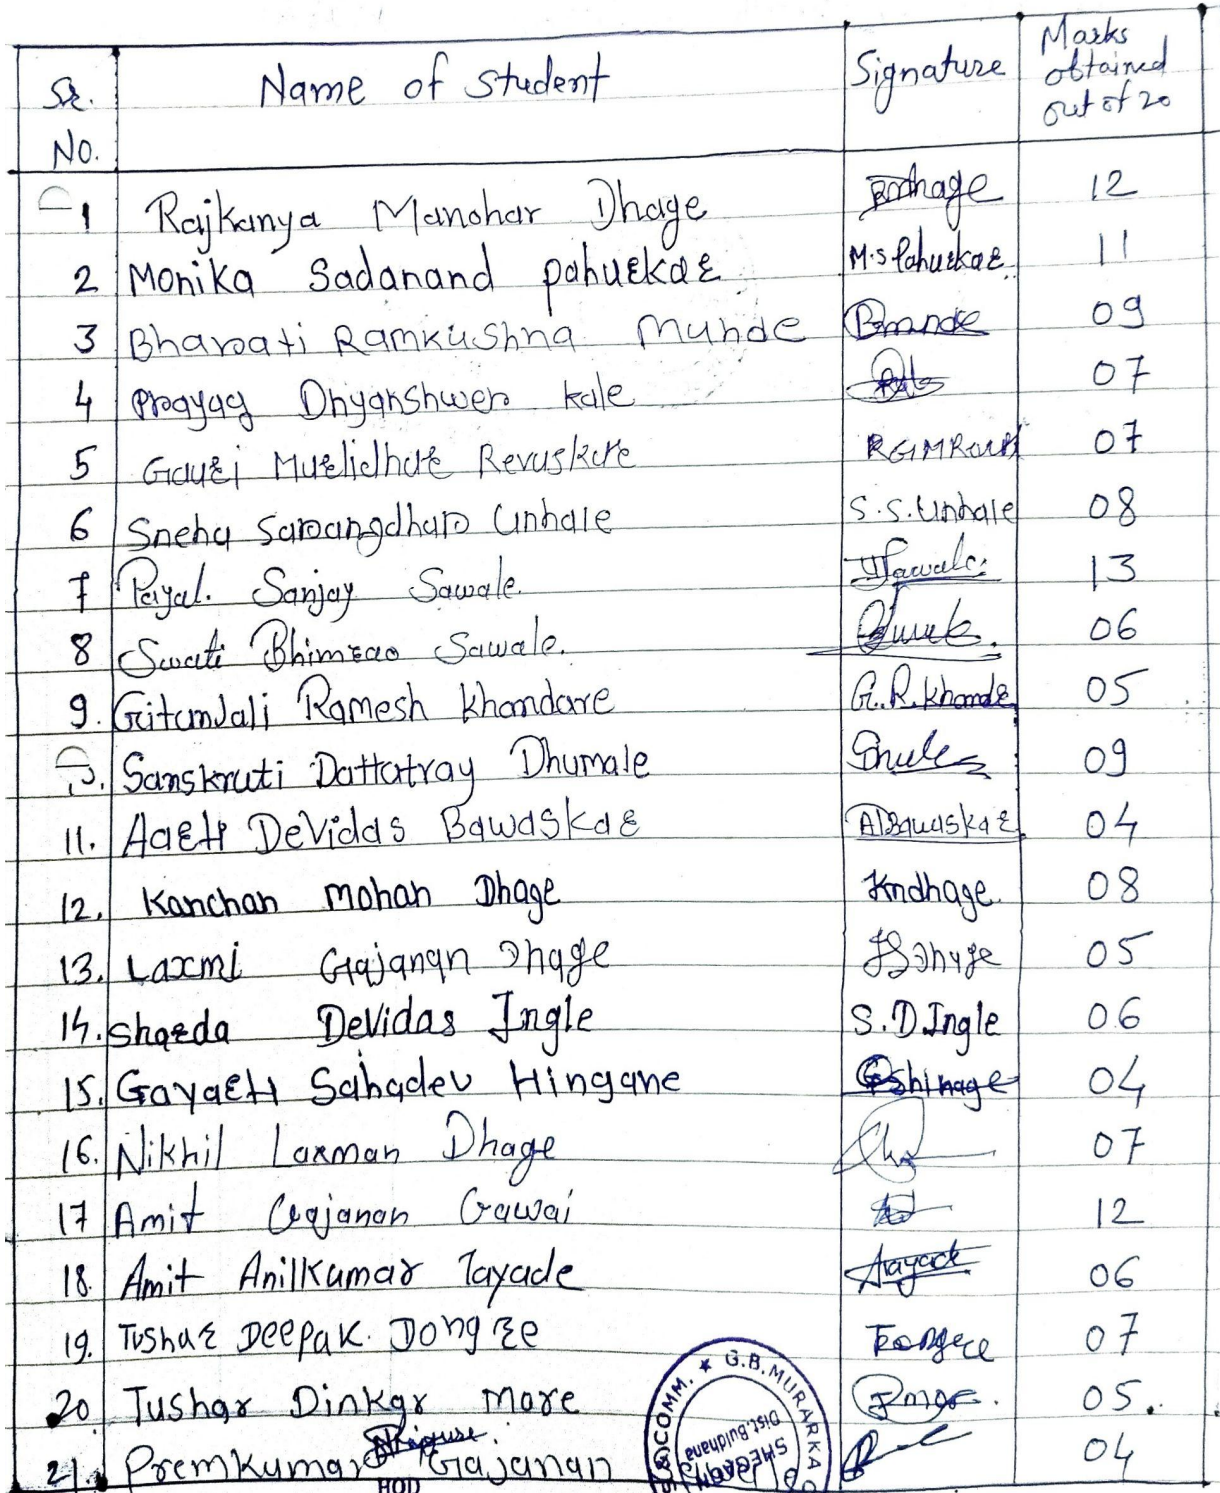 Sr. No. Name of Student Signature Marks obtained out of 20
1 Rajkanya Manohar Dhage 12
2 Monika Sadanand Pahurkar M.S Pahurkar 11
3 Bharati Ramkushna Munde 09
4 Pragyag Dhyanshwer kale 07
5 Gauri Murlidhar Revuskar 07
6 Sneha Sarangdhar Unhale S.S.Unhale 08
7 Payal. Sanjay Sawale. 13
8 Swati Bhimrao Sawale. 06
9. GitanJali Ramesh Khandare G.R.Khande 05
Sanskruti Dattatray Dhumale 09
11. Aarti DeVidas Bawaskar ADBawaskar 04
12. Kanchan Mohan Dhage Kmdhage. 08
13. Laxmi Gajanan Dhage 05
14. Sharda DeVidas Ingle S.D.Ingle 06
15. Gayatri Sahadev Hingane 04
16. Nikhil Laxman Dhage 07
17 Amit Gajanan Gawai 12
18. Amit Anilkumar Tayade 06
19. Tushar Deepak. Dongre 07
20 Tushar Dinkar More 05.
21. Premkumar Gajanan 04
HOD
COMM. ★ G.B.MURARKA
SHEGAON
Dist.Buldhana